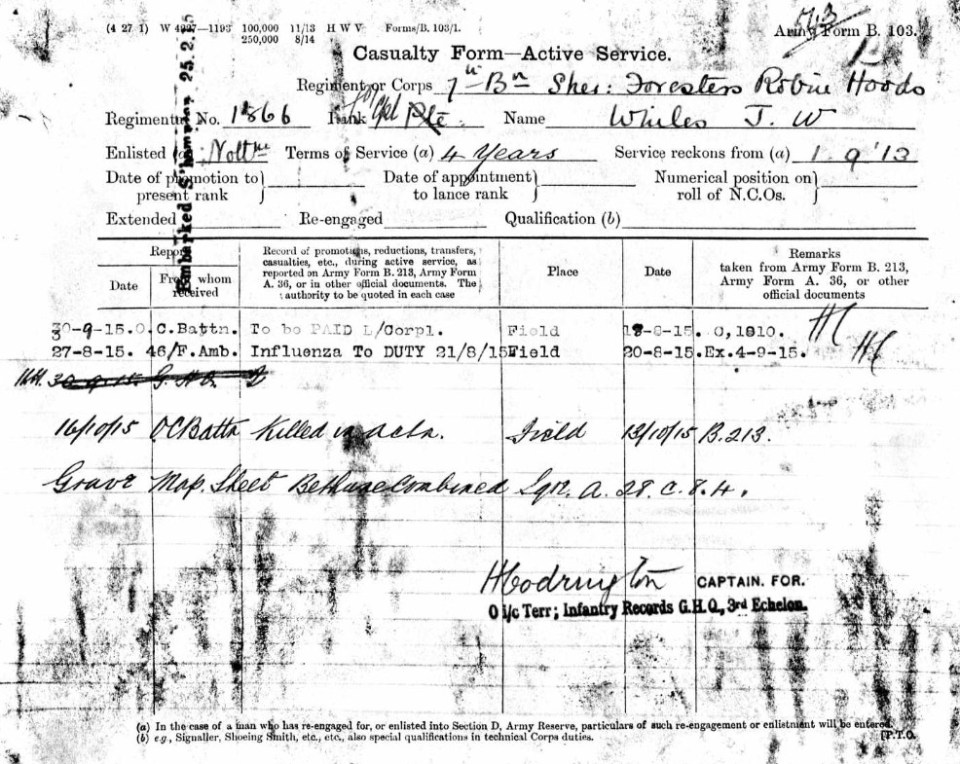 (4 27 1) W 4297—1193 100,000 11/13 H W V Forms/B. 103/1.
250,000 8/14
Army Form B. 103.
Embarked S'hampton 25.2.15
Casualty Form—Active Service.
Regiment or Corps 7th Bn Sher: Foresters Robin Hoods
Regimental No. 1866 Rank Cpl Pte. Name Whiles J. W
Enlisted (a) Nottm Terms of Service (a) 4 Years Service reckons from (a) 1 9 '13
Date of promotion to present rank } Date of appointment to lance rank } Numerical position on roll of N.C.Os. }
Extended Re-engaged Qualification (b)
Report
Date From whom received
Record of promotions, reductions, transfers, casualties, etc., during active service, as reported on Army Form B. 213, Army Form A. 36, or in other official documents. The authority to be quoted in each case
Place
Date
Remarks taken from Army Form B. 213, Army Form A. 36, or other official documents
30-9-15. O.C.Battn. To be PAID L/Corpl. Field -15. O,1810. HC
27-8-15. 46/F.Amb. Influenza To DUTY 21/8/15 Field 20-8-15. Ex.4-9-15. HC
16/10/15 OC Battn Killed in actn. Field 13/10/15 B.213.
Grave Map. Sheet Bethune Combined Sqr. A. 28. c. 8. 4.
HCodrington CAPTAIN. FOR.
O i/c Terr; Infantry Records G.H.Q., 3rd Echelon.
(a) In the case of a man who has re-engaged for, or enlisted into Section D, Army Reserve, particulars of such re-engagement or enlistment will be entered.
(b) e.g., Signaller, Shoeing Smith, etc., etc., also special qualifications in technical Corps duties. [P.T.O.